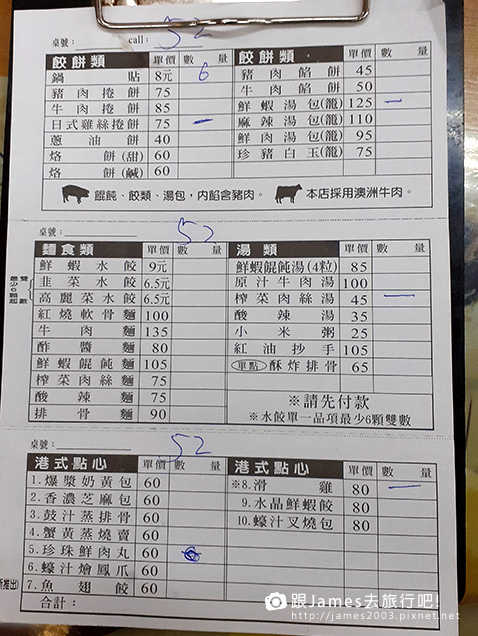 桌號： call： 52
餃餅類 單價 數量
鍋貼 8元 6
豬肉捲餅 75
牛肉捲餅 85
日式雞絲捲餅 75 一
蔥油餅 40
烙餅(甜) 60
烙餅(鹹) 60
餃餅類 單價 數量
豬肉餡餅 45
牛肉餡餅 50
鮮蝦湯包(籠) 125 一
麻辣湯包(籠) 110
鮮肉湯包(籠) 95
珍豬白玉(籠) 75
餛飩、餃類、湯包，內餡含豬肉。 本店採用澳洲牛肉。
桌號： 52
麵食類 單價 數量
鮮蝦水餃 9元
韭菜水餃 6.5元
高麗菜水餃 6.5元
雙數
最少6顆起
紅燒軟骨麵 100
牛肉麵 135
酢醬麵 80
鮮蝦餛飩麵 105
榨菜肉絲麵 75
酸辣麵 75
排骨麵 90
湯類 單價 數量
鮮蝦餛飩湯(4粒) 85
原汁牛肉湯 100
榨菜肉絲湯 45 一
酸辣湯 35
小米粥 25
紅油抄手 105
單點 酥炸排骨 65
※請先付款
※水餃單一品項最少6顆雙數
桌號： 52
港式點心 單價 數量
1.爆漿奶黃包 60
2.香濃芝麻包 60
3.鼓汁蒸排骨 60
4.蟹黃蒸燒賣 60
5.珍珠鮮肉丸 60
6.蠔汁燴鳳爪 60
7.魚翅餃 60
推出)
合計：
港式點心 單價 數量
※8.滑雞 80 一
9.水晶鮮蝦餃 80
10.蠔汁叉燒包 80
跟James去旅行吧!
http://james2003.pixnet.net